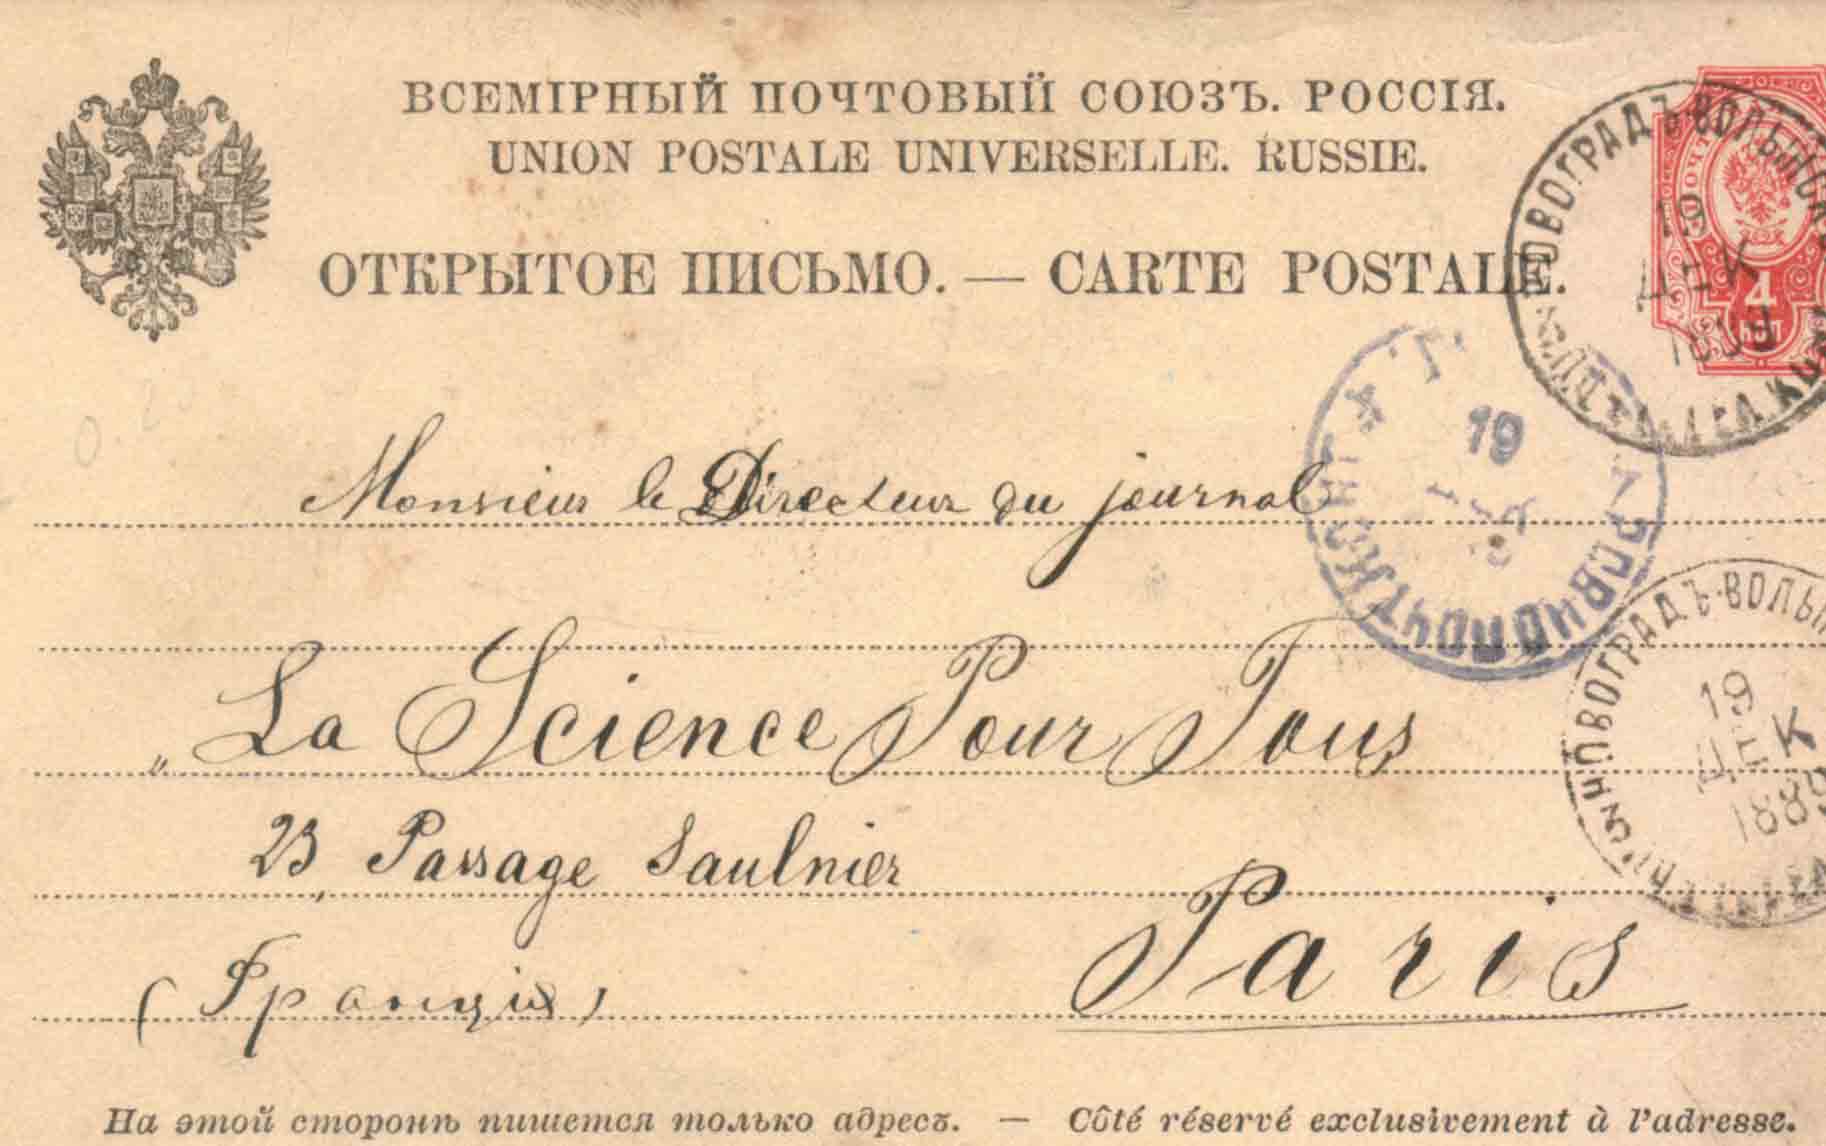 ВСЕМІРНЫЙ ПОЧТОВЫЙ СОЮЗЪ. РОССІЯ.
UNION POSTALE UNIVERSELLE. RUSSIE.
ОТКРЫТОЕ ПИСЬМО. — CARTE POSTALE.
4
КОП
НОВОГРАДЪ-ВОЛЫНСК
19
ДЕК
19
Monsieur le Directeur du journal
„La Science Pour Tous
НОВОГРАДЪ-ВОЛЫ
19
ДЕК
1889
23, Passage Saulnier
Paris
(Франція)
На этой сторонѣ пишется только адресъ. — Côté réservé exclusivement à l'adresse.